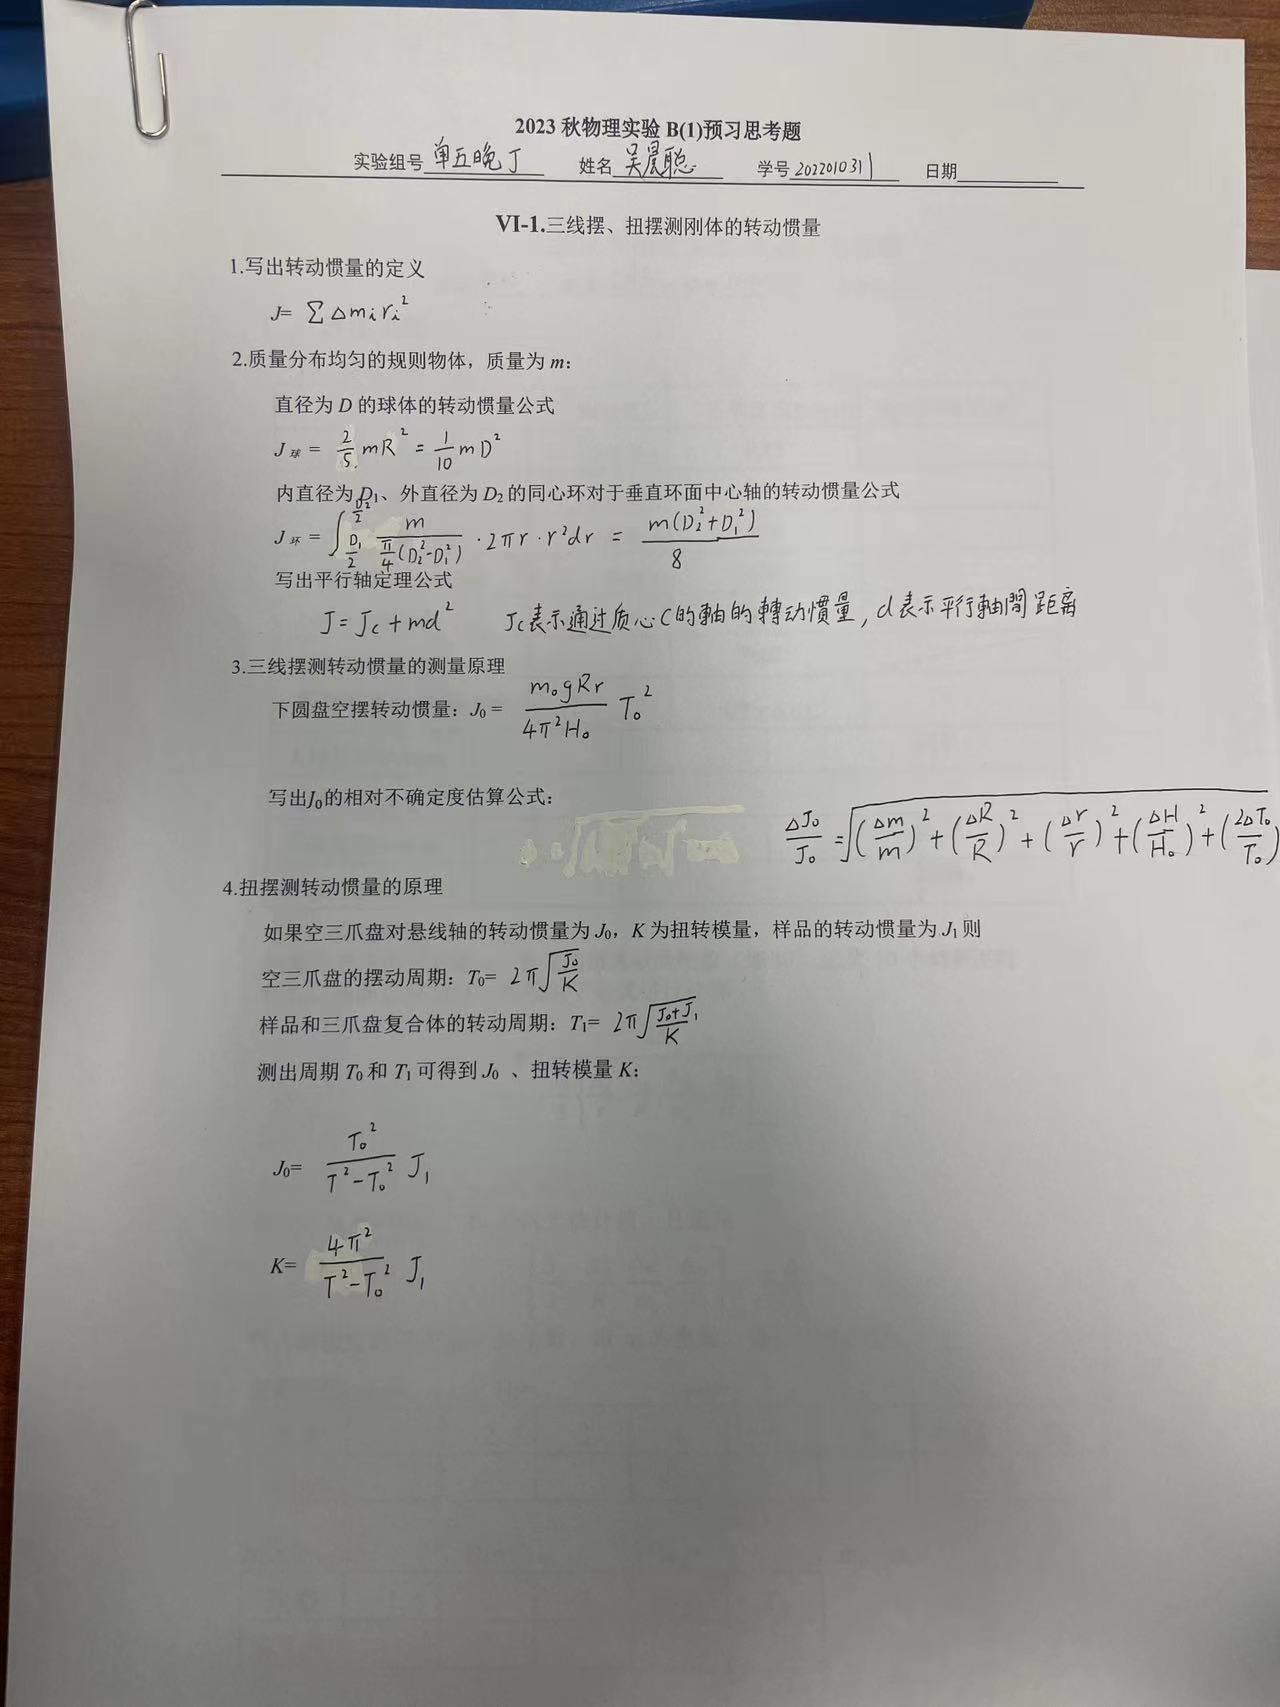 2023 秋物理实验 B(1)预习思考题
实验组号 单五晚J 姓名 吴晨聪 学号 2022010311 日期
VI-1.三线摆、扭摆测刚体的转动惯量
1.写出转动惯量的定义
J= ∑ Δmᵢrᵢ²
2.质量分布均匀的规则物体，质量为 m：
直径为 D 的球体的转动惯量公式
J球 = 2/5 mR² = 1/10 mD²
内直径为 D₁、外直径为 D₂ 的同心环对于垂直环面中心轴的转动惯量公式
J环 = ∫_{D₁/2}^{D₂/2} m/(π/4(D₂²-D₁²)) · 2πr · r²dr = m(D₂²+D₁²)/8
写出平行轴定理公式
J = Jc + md² Jc表示通过质心C的軸的轉动惯量, d表示平行軸間距离
3.三线摆测转动惯量的测量原理
下圆盘空摆转动惯量：J₀ = m₀gRr/4π²H₀ T₀²
写出J₀的相对不确定度估算公式：
ΔJ₀/J₀ = √((Δm/m)² + (ΔR/R)² + (Δr/r)² + (ΔH/H₀)² + (2ΔT₀/T₀)
4.扭摆测转动惯量的原理
如果空三爪盘对悬线轴的转动惯量为 J₀，K 为扭转模量，样品的转动惯量为 J₁ 则
空三爪盘的摆动周期：T₀= 2π√(J₀/K)
样品和三爪盘复合体的转动周期：T₁= 2π√((J₀+J₁)/K)
测出周期 T₀ 和 T₁ 可得到 J₀ 、扭转模量 K：
J₀= T₀²/(T²-T₀²) J₁
K= 4π²/(T²-T₀²) J₁